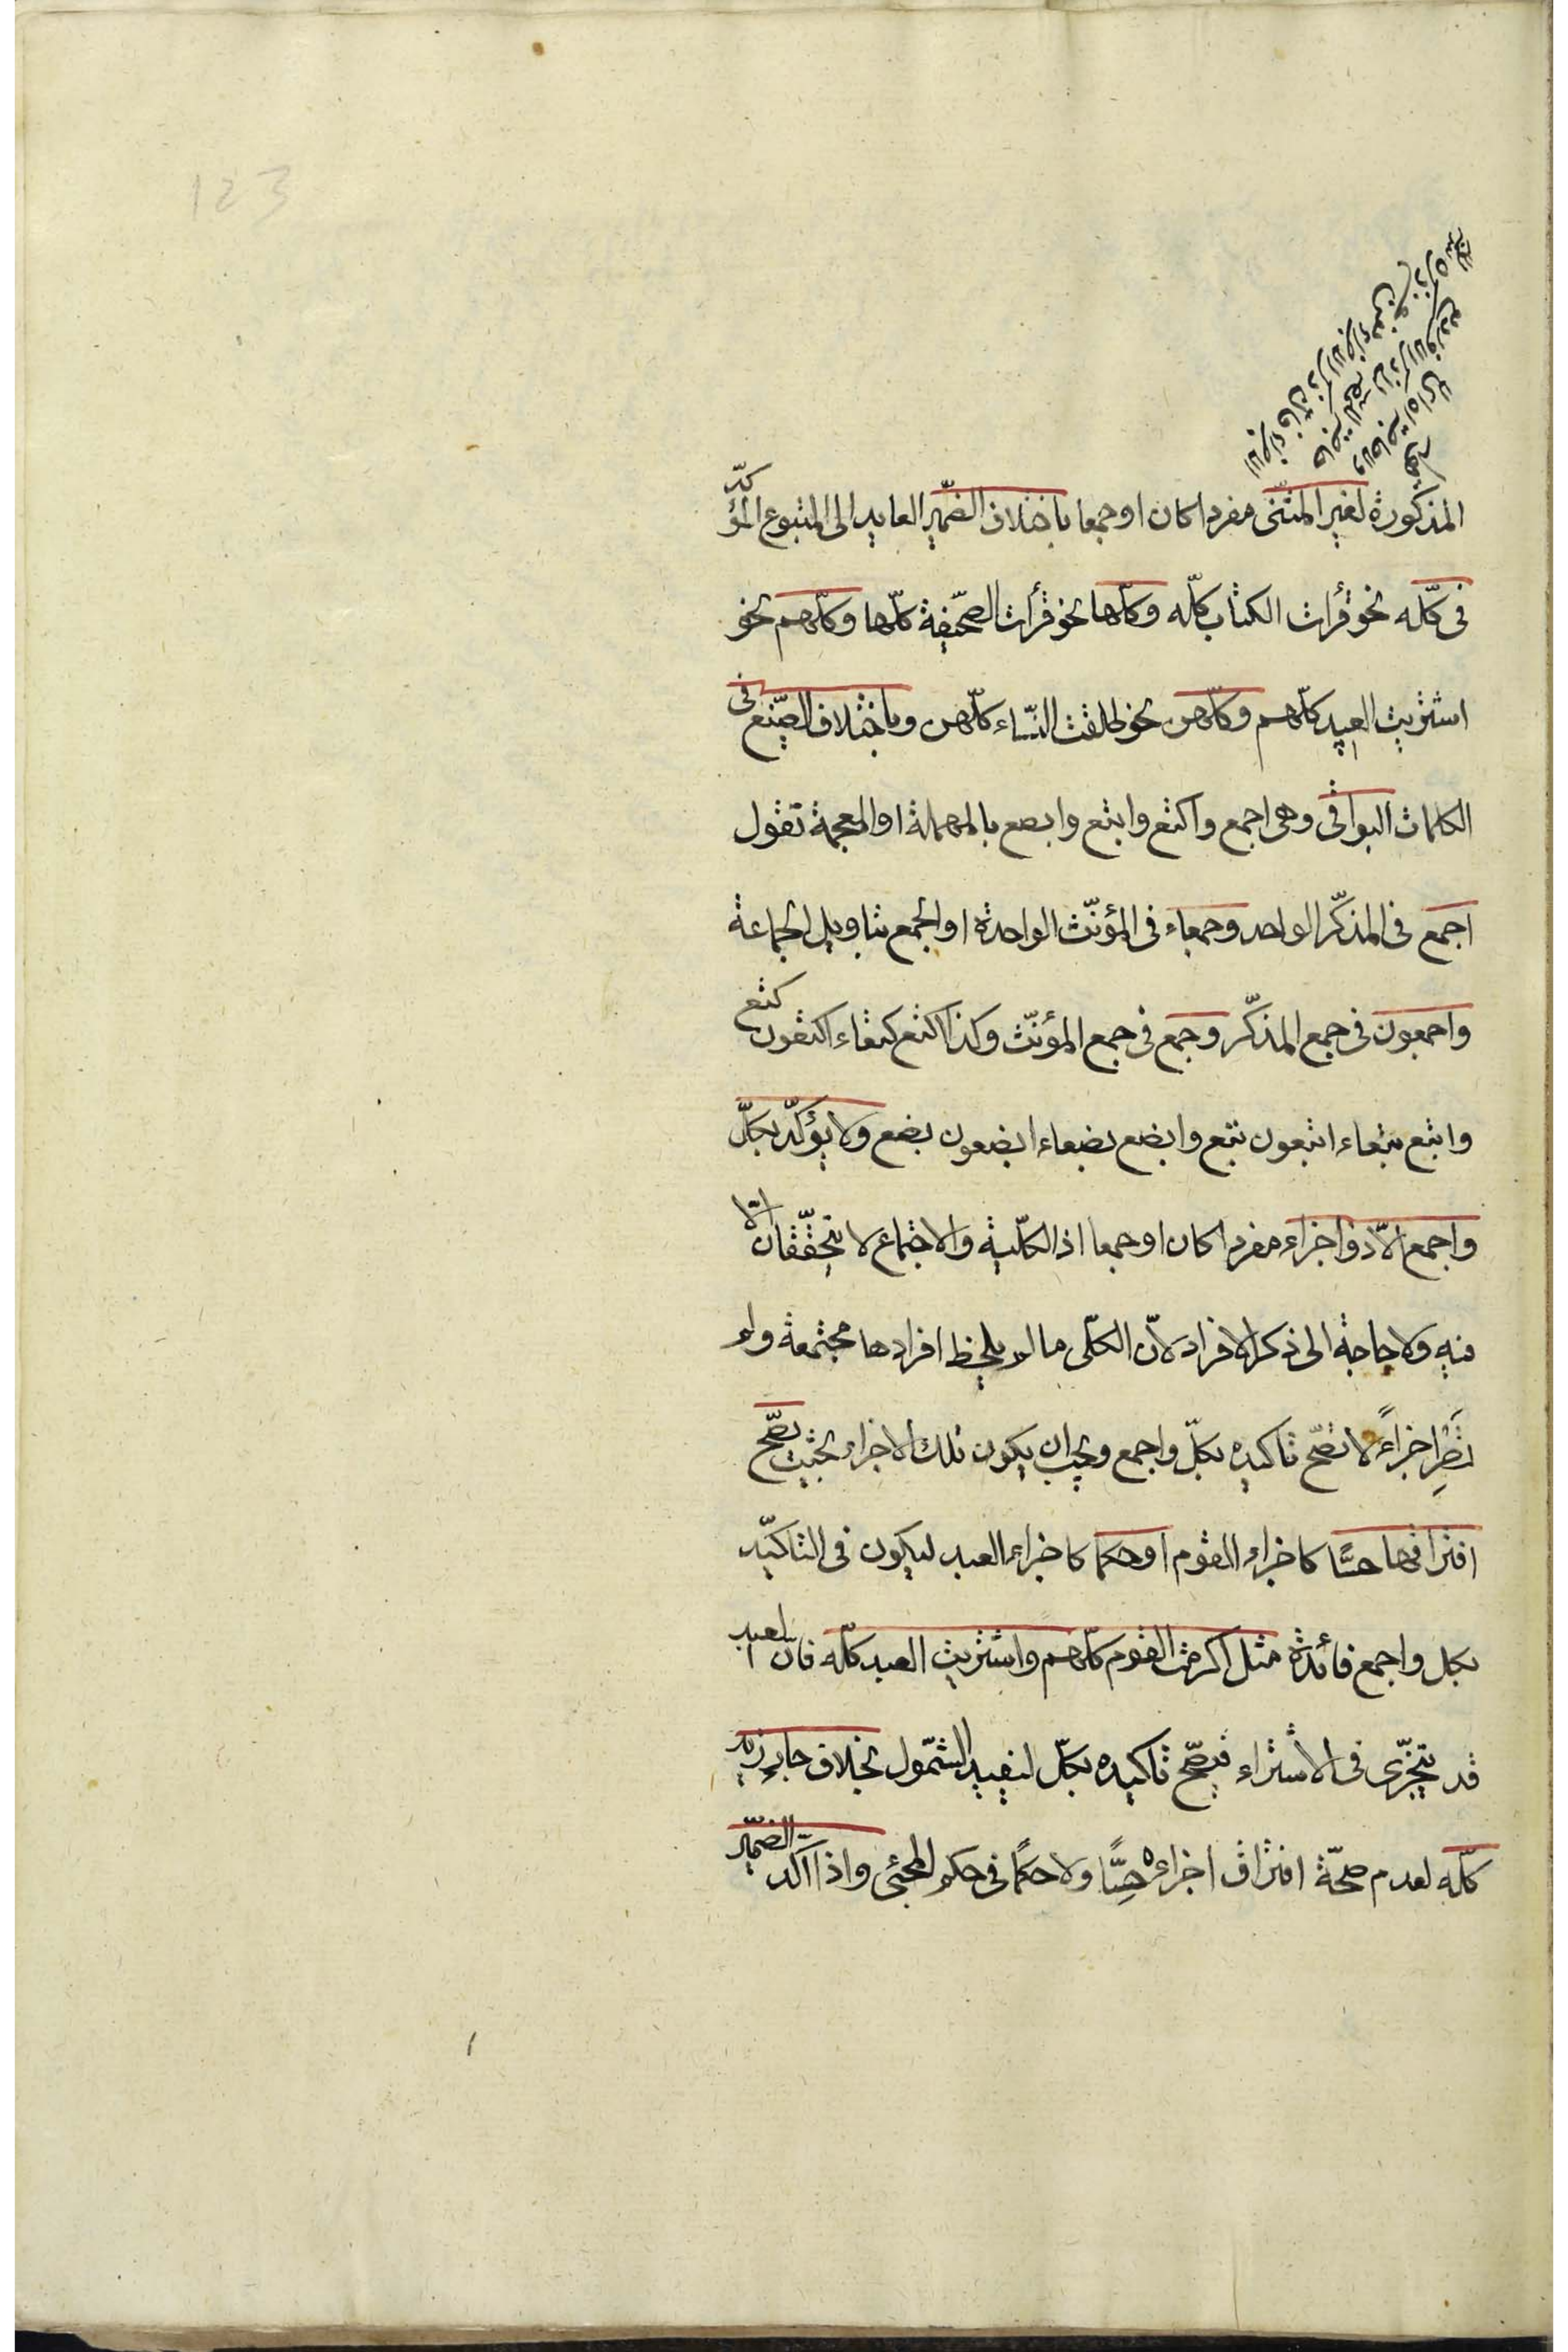 123
المذكورة لغير المثنّى مفردا كان او جمعا باختلاف الضّمير العايد الى المتبوع المؤكّد
فى كلّه نحو قرأت الكتاب كلّه وكلّها نحو قرأت الصّحيفة كلّها وكلّهم نحو
اشتريت العبيد كلّهم وكلّهن نحو طلقت النّساء كلّهن وباختلاف الصّيغ فى
الكلمات البواقى وهى اجمع واكتع وابتع وابصع بالمهملة او المعجمة تقول
اجمع فى المذكّر الواحد وجمعاء فى المؤنّث الواحدة او الجمع بتاويل الجماعة
واجمعون فى جمع المذكّر وجمع فى جمع المؤنّث وكذا اكتع كتعاء اكتعون كتع
وابتع بتعاء ابتعون بتع وابضع بضعاء ابضعون بضع ولا يؤكّد بكلّ
واجمع الاّ ذو اجزاء مفردا كان او جمعا اذ الكلّية والاجتماع لا يتحقّقان الاّ
فيه ولا حاجة الى ذكر الافراد لانّ الكلّى ما لم يلحظ افرادها مجتمعة ولم
تصر اجزاءً لا تصّح تاكيده بكلّ واجمع ويجب ان يكون تلك الاجزاء بحيث يصّح
افتراقها حسّا كاجزاء القوم او حكما كاجزاء العبد ليكون فى التاكيد
بكل واجمع فائدة مثل اكرمت القوم كلّهم واشتريت العبد كلّه فانّ العبد
قد يتجزّى فى الاشتراء فيصّح تاكيده بكلّ ليفيد الشّمول بخلاف جاء زيد
كلّه لعدم صحّة افتراق اجزاءه حسًّا ولا حكمًا فى حكم المجئى واذا اكد الضّمير